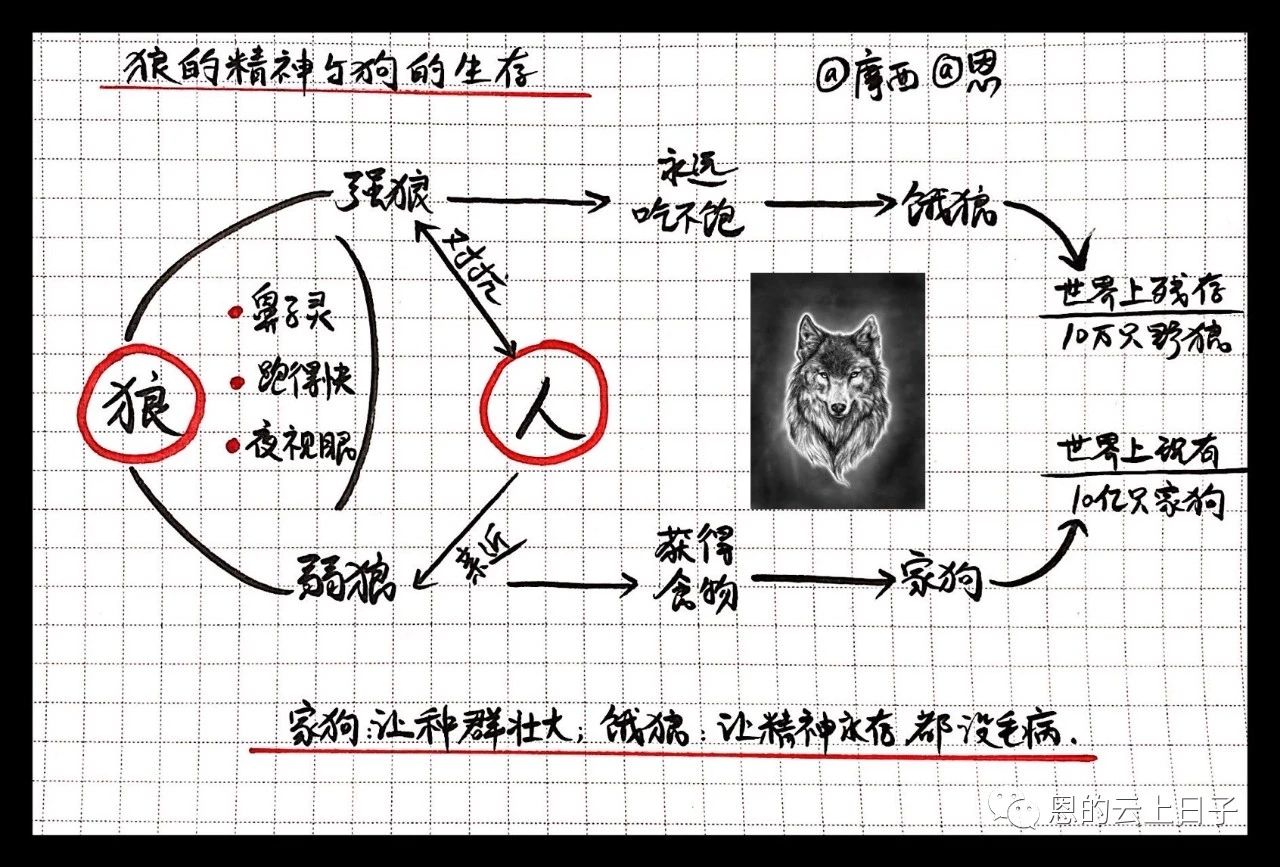 狼的精神与狗的生存
@摩西 @恩
强狼
永远
吃不饱
饿狼
对抗
世界上残存
10万只野狼
鼻子灵
跑得快
夜视眼
狼
人
世界上现有
10亿只家狗
弱狼
亲近
获得
食物
家狗
家狗:让种群壮大; 饿狼:让精神永存,都没毛病.
恩的云上日子